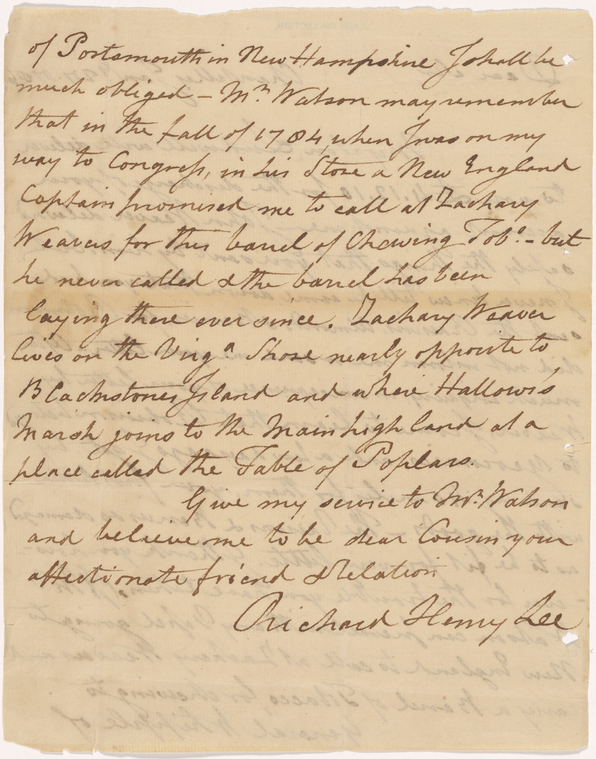 of Portsmouth in New Hampshire I shall be
much obliged – Mr. Watson may remember
that in the fall of 1784, when I was on my
way to Congress, in his Store a New England
Captain promised me to call at Zachary
Weavers for this barrel of Chewing Tobo. – but
he never called & the barrel has been
laying there ever since. Zachary Weaver
lives on the Virga. Shore nearly opposite to
Blackstones Island and where Hallows's
Marsh joins to the Main high land at a
place called the Table of Poplars.
Give my service to Mr. Watson
and believe me to be dear Cousin your
affectionate friend & Relation
Richard Henry Lee